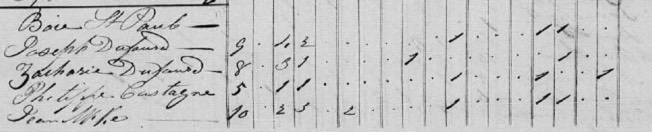 Baie St Paul — 1 1 . .
Joseph Dufourd — 9 . 4 2 . . . . . 1 . . . . .
Zacharie Dufourd — 8 . 3 1 . . . 1 . . . . 1 . .
Philippe Castagne 5 . 1 1 . . . . . 1 . . 1 . 1
Jean 10 . 2 3 . 2 . . . 1 . . 1 1 . .